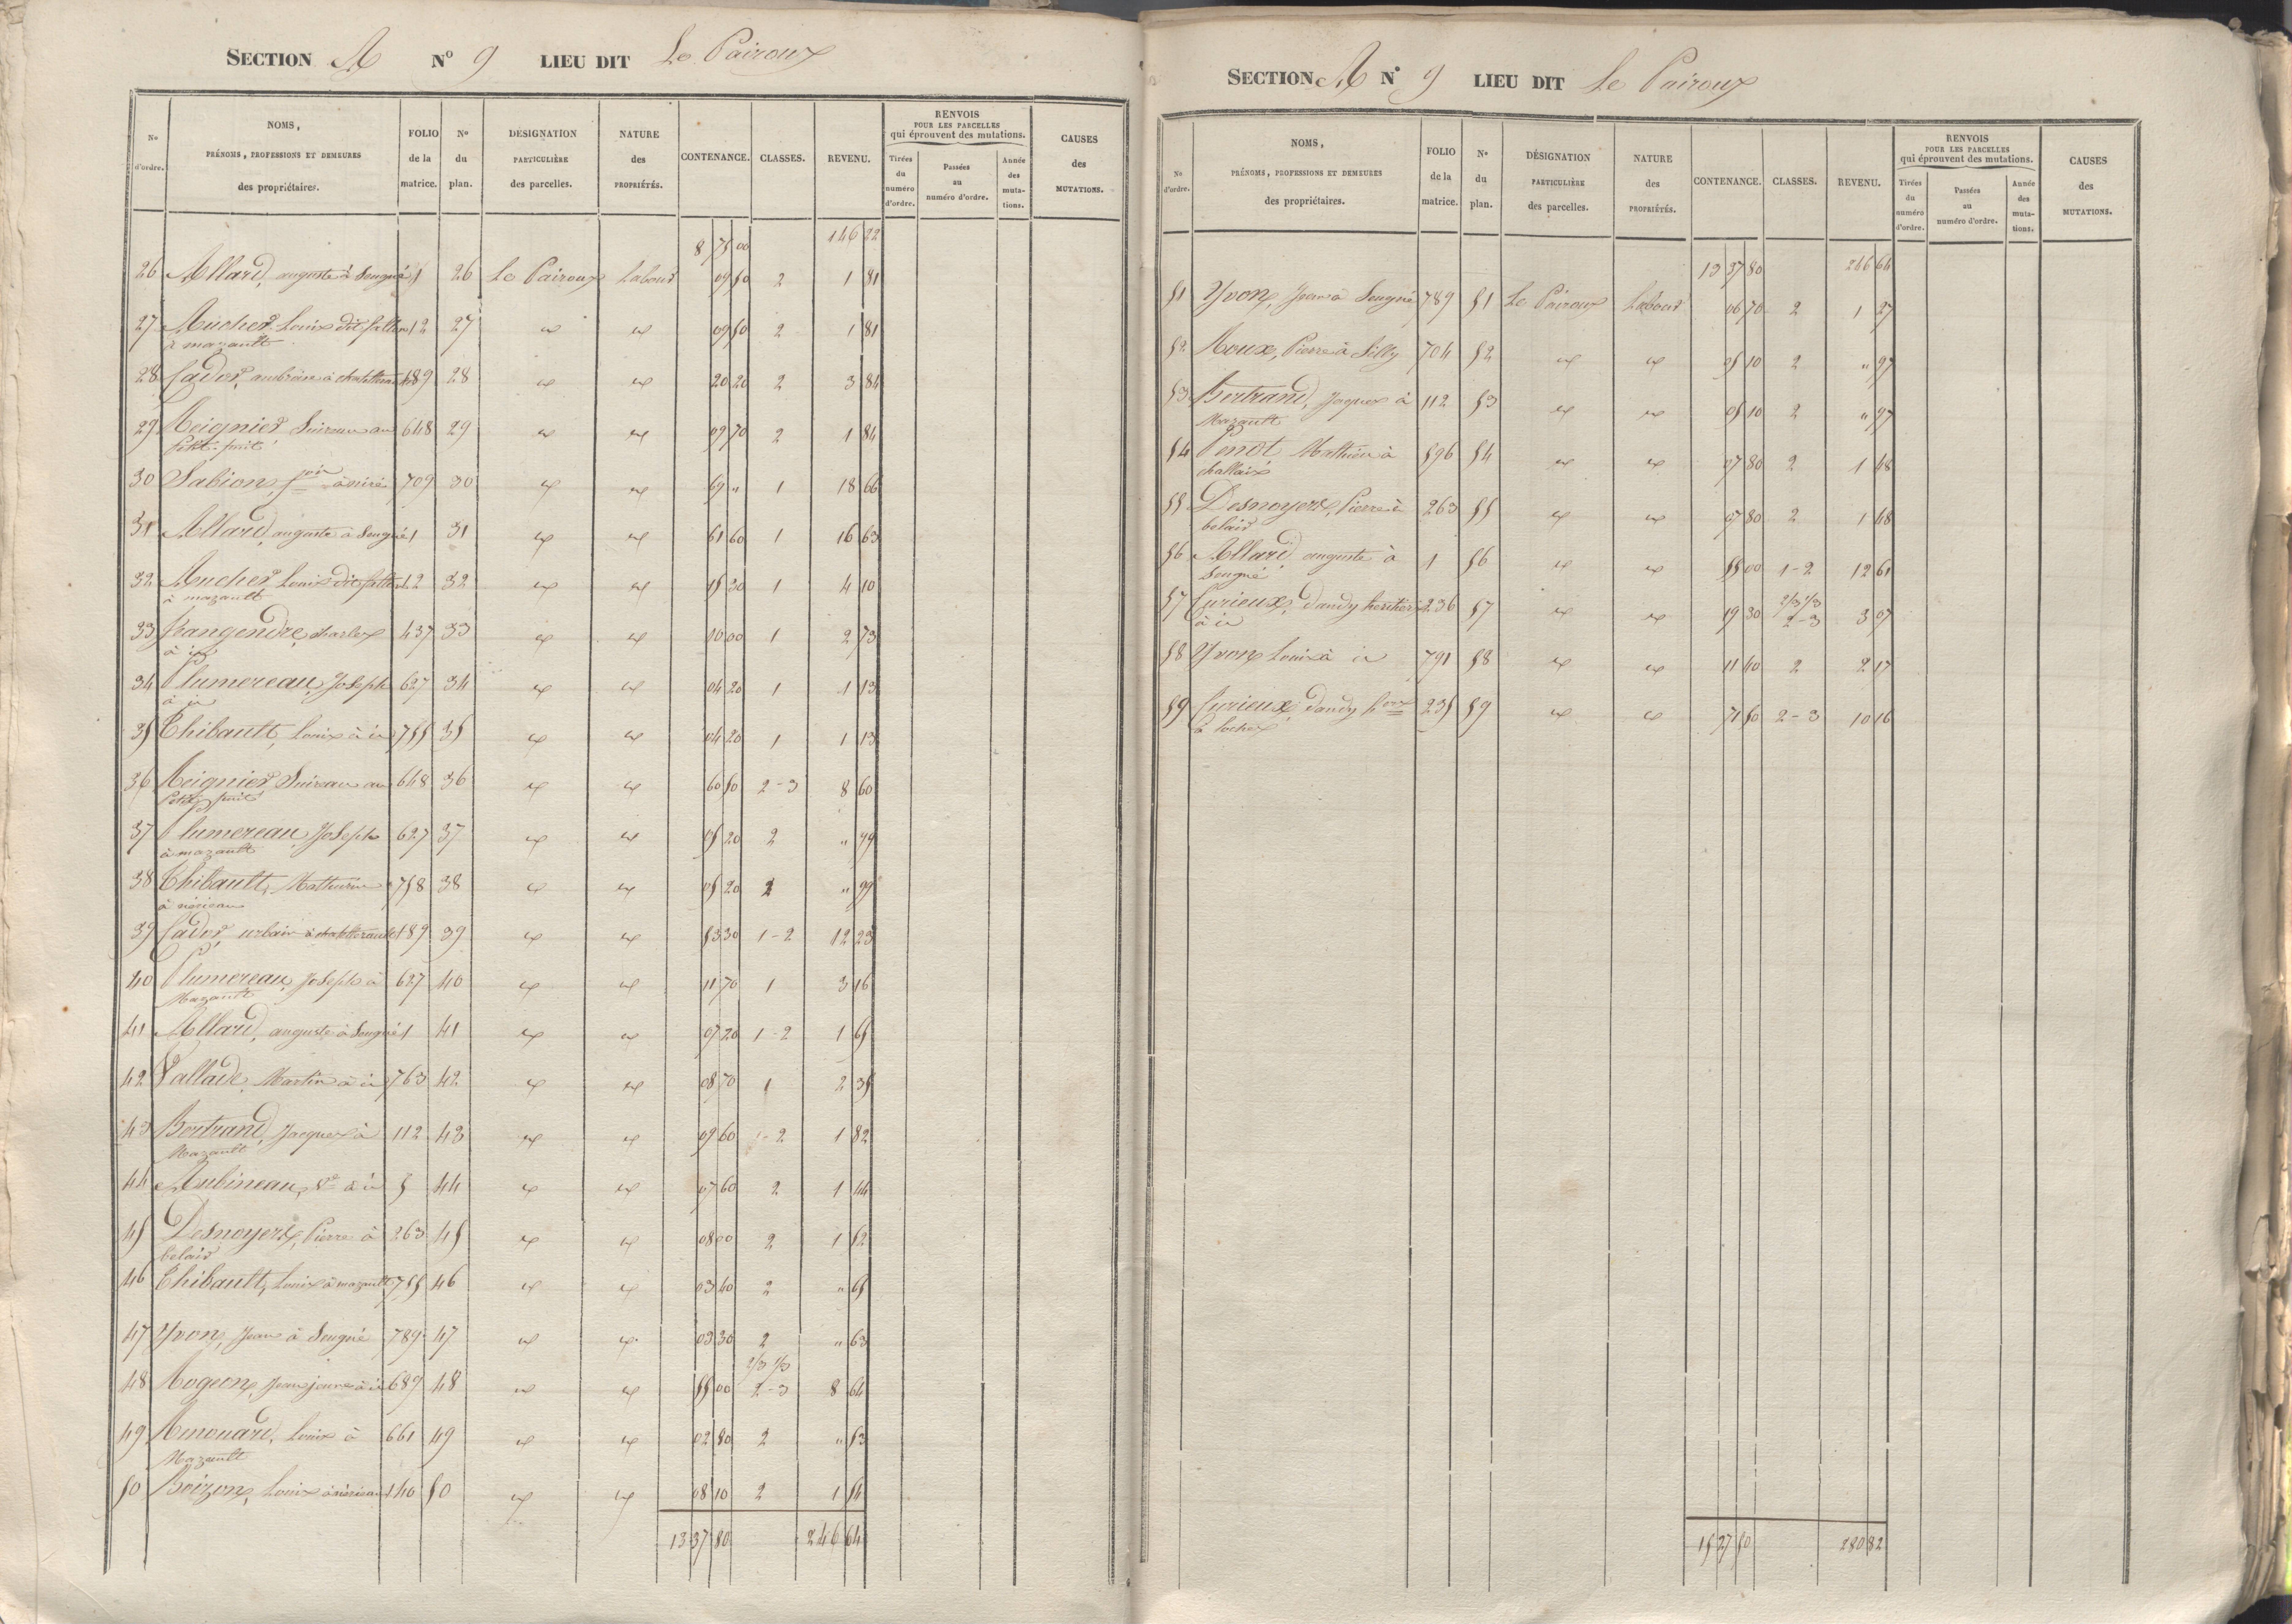 SECTION A N° 9 LIEU DIT Le Pairoux
N° d'ordre. NOMS, PRÉNOMS, PROFESSIONS ET DEMEURES des propriétaires. FOLIO de la matrice. N° du plan. DÉSIGNATION PARTICULIÈRE des parcelles. NATURE des PROPRIÉTÉS. CONTENANCE. CLASSES. REVENU. RENVOIS POUR LES PARCELLES qui éprouvent des mutations. Tirées du numéro d'ordre. Passées au numéro d'ordre. Année des mutations. CAUSES des MUTATIONS.
8 75 00 146 22
26 Allard, auguste à Seugné 1 26 Le Pairoux Labour 09 50 2 1 81
27 Aucher, Louis dit 12 27 " " 09 50 2 1 81
à mazault
28 Cador, à chatellerault 189 28 " " 20 20 2 3 84
29 Reignier Suireau au 648 29 " " 09 70 2 1 84
Petit-puit
30 Sabion, à 709 30 " " 69 " 1 18 66
31 Allard, auguste à Seugné 1 31 " " 61 60 1 16 63
32 Aucher Louis dit 12 32 " " 15 20 1 4 10
à mazault
33 Frangendre, charles 437 33 " " 10 00 1 2 73
à
34 Plumereau, Joseph 627 34 " " 04 20 1 1 13
à id
35 Thibault, Louis à id 755 35 " " 04 20 1 1 13
36 Reignier Suireau au 648 36 " " 60 50 2-3 8 60
Petit puit
37 Plumereau, Joseph 627 37 " " 05 20 2 " 99
à mazault
38 Thibault, Mathurin 758 38 " " 05 20 2 " 99
à
39 Cador, urbain à chatellerault 189 39 " " 53 30 1-2 12 23
40 Plumereau, Joseph à 627 40 " " 11 70 1 3 16
Mazault
41 Allard, auguste à Seugné 1 41 " " 07 20 1-2 1 65
42 Vallade, Martin à id 763 42 " " 08 70 1 2 35
43 Bertrand, Jacques à 112 43 " " 09 60 1-2 1 82
Mazault
44 Aubineau, Ve à id 5 44 " " 07 60 2 1 44
45 Desnoyers, Pierre à 263 45 " " 08 00 2 1 52
belair
46 Thibault, Louis à mazault 755 46 " " 03 40 2 " 65
47 Yvon, Jean à Seugné 789 47 " " 03 30 2 " 63
2/3 1/3
48 Rogeon, Jean jeune à id 689 48 " " 55 00 2-3 8 64
49 Renouard, Louis à 661 49 " " 02 80 2 " 53
Mazault
50 Boizon, Louis à 140 50 " " 08 10 2 1 54
13 37 80 246 64
SECTION A N° 9 LIEU DIT Le Pairoux
N° d'ordre. NOMS, PRÉNOMS, PROFESSIONS ET DEMEURES des propriétaires. FOLIO de la matrice. N° du plan. DÉSIGNATION PARTICULIÈRE des parcelles. NATURE des PROPRIÉTÉS. CONTENANCE. CLASSES. REVENU. RENVOIS POUR LES PARCELLES qui éprouvent des mutations. Tirées du numéro d'ordre. Passées au numéro d'ordre. Année des mutations. CAUSES des MUTATIONS.
13 37 80 246 64
51 Yvon, Jean à Seugné 789 51 Le Pairoux Labour 06 70 2 1 27
52 Roux, Pierre à Silly 704 52 " " 05 10 2 " 97
53 Bertrand, Jacques à 112 53 " " 05 10 2 " 97
Mazault
54 Penot, Mathieu à 596 54 " " 07 80 2 1 48
challais
55 Desnoyers, Pierre à 263 55 " " 07 80 2 1 48
belair
56 Allard, auguste à 1 56 " " 55 00 1-2 12 61
Seugné
57 Curieux, dandy héritiers 236 57 " " 19 30 2/3 1/3 2-3 3 07
à id
58 Yvon, Louis à id 791 58 " " 11 40 2 2 17
59 Curieux, dandy 235 59 " " 71 50 2-3 10 16
à loches
15 27 50 280 82